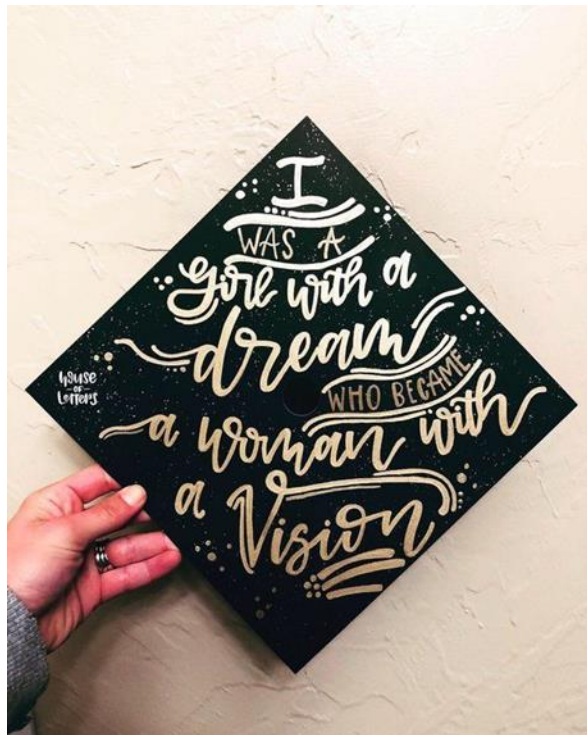 I
WAS A
girl with a
dream
WHO BECAME
a woman with
a Vision
House
OF
Letters